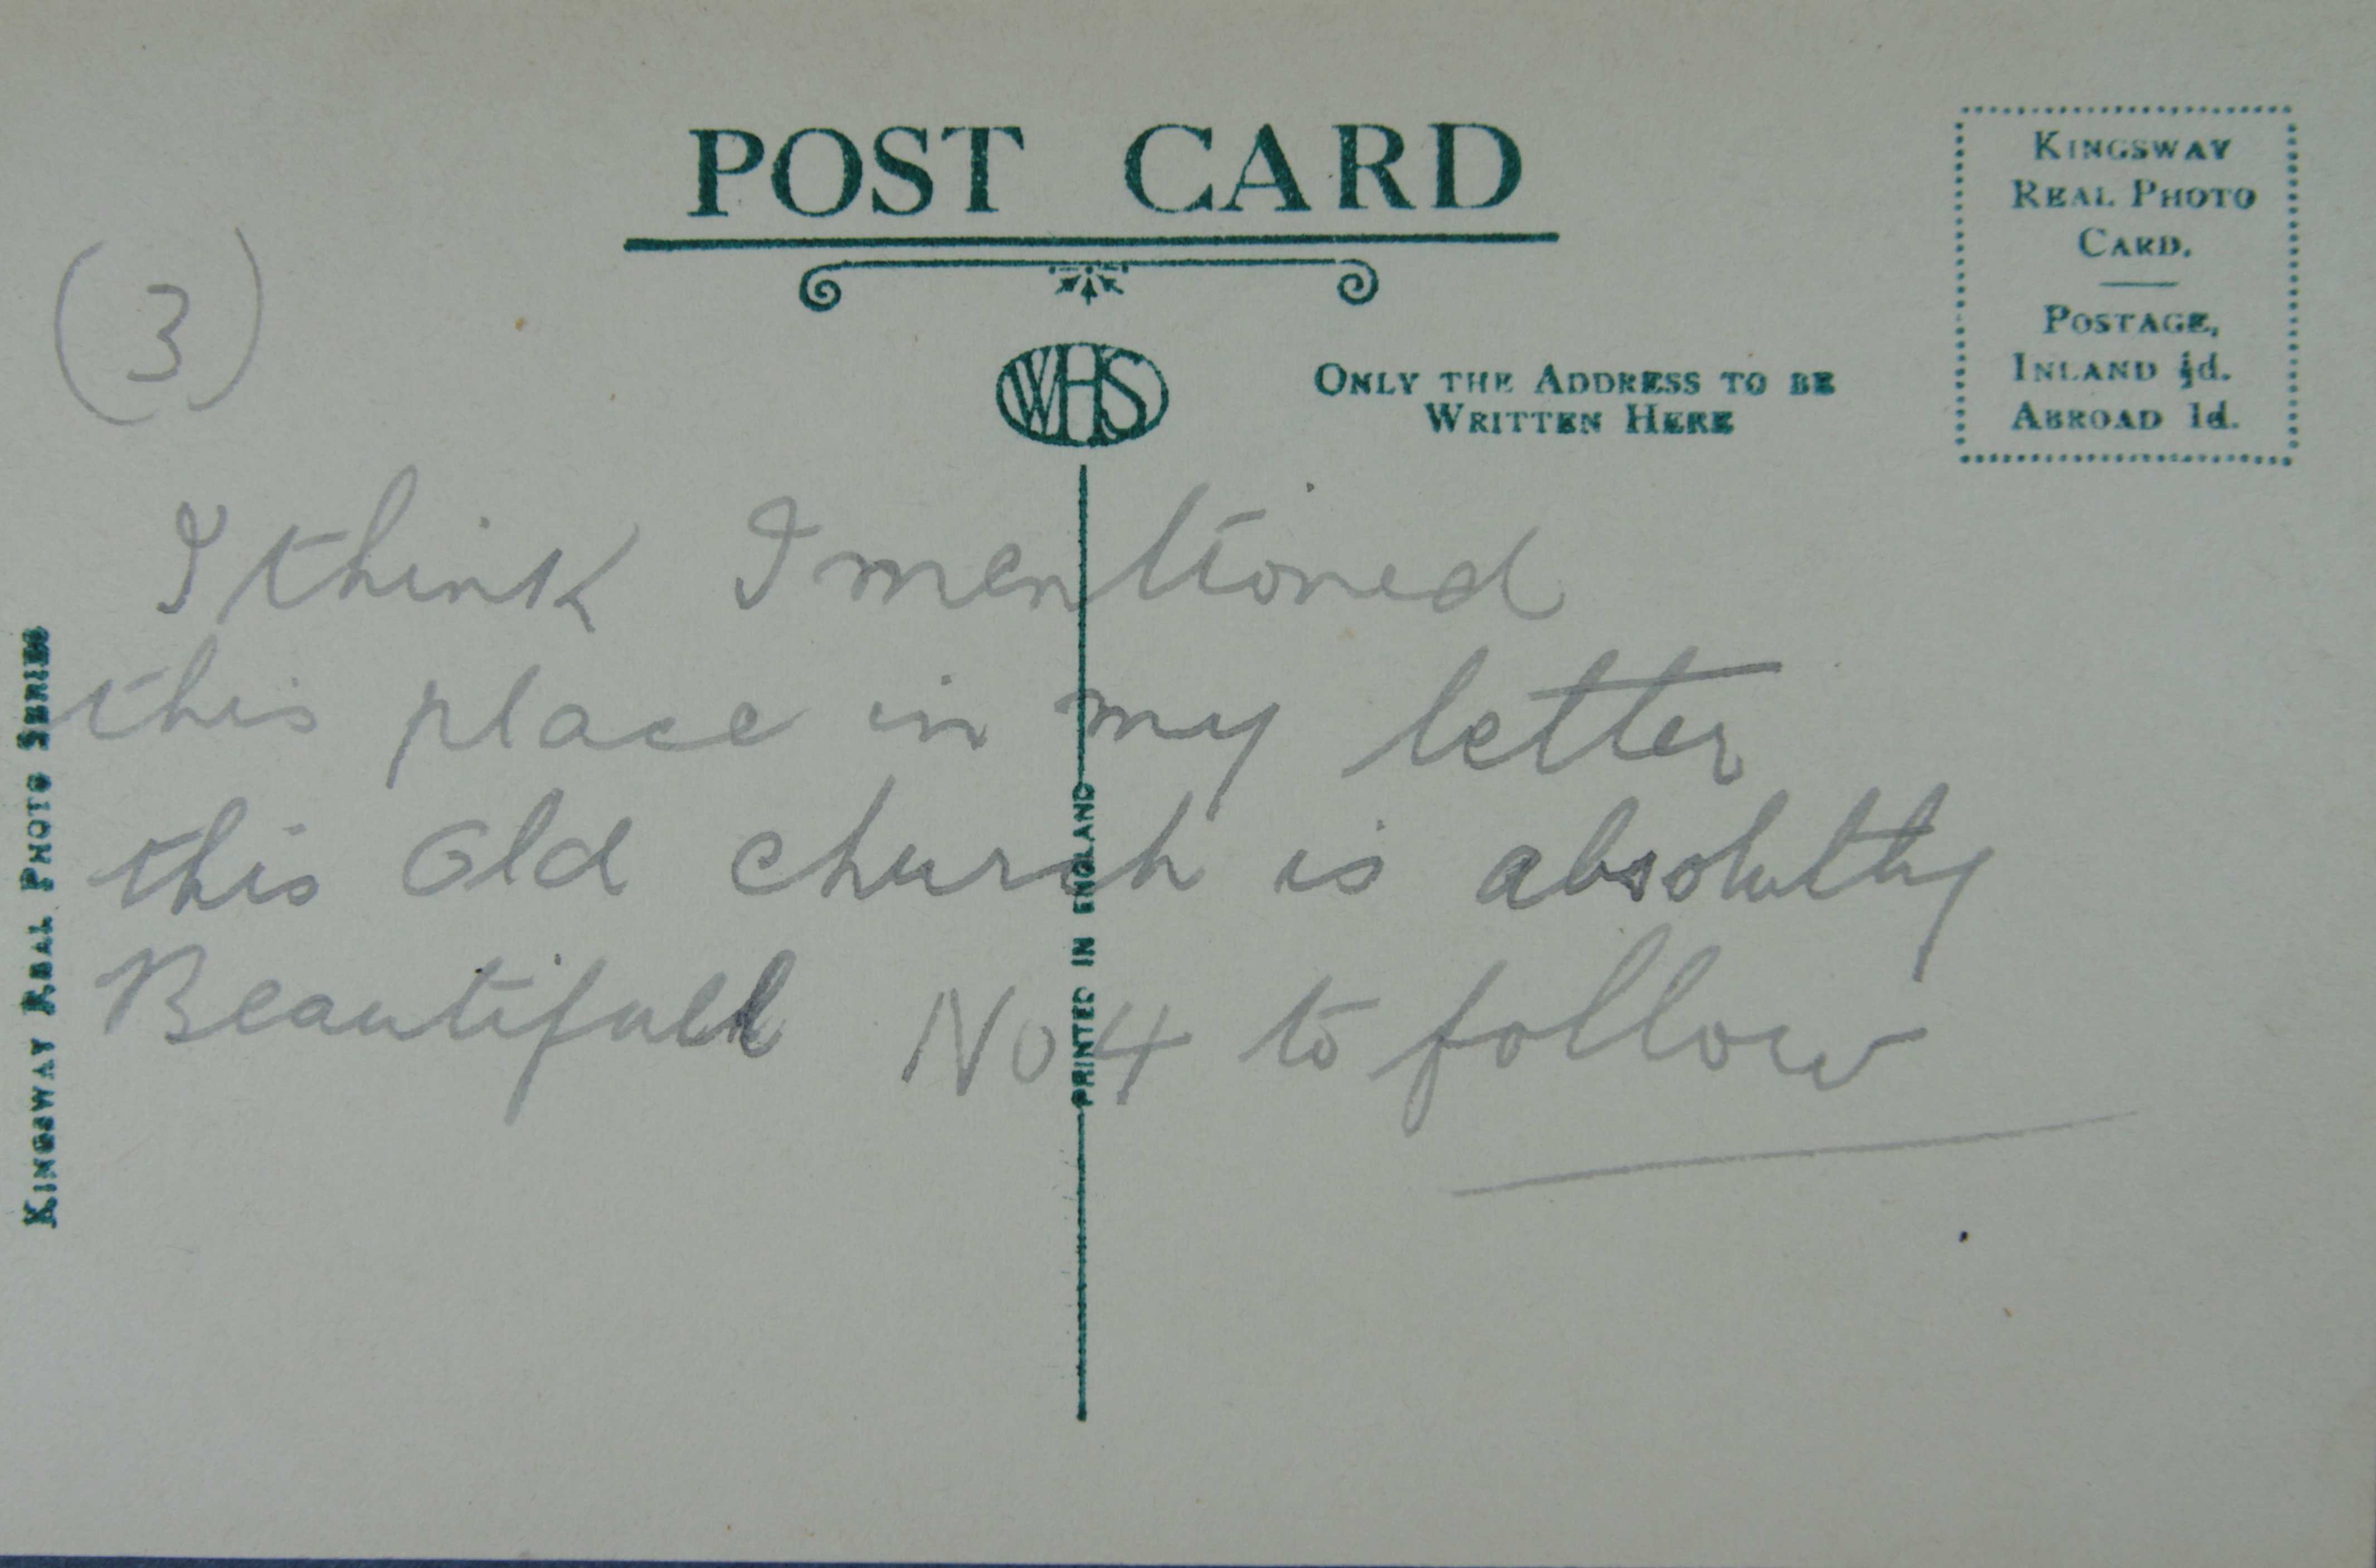 POST CARD
KINGSWAY
REAL PHOTO
CARD.
POSTAGE,
INLAND ½d.
ABROAD 1d.
(3)
WHS
ONLY THE ADDRESS TO BE
WRITTEN HERE
I think I mentioned
this place in my letter
this Old church is absolutly
Beautifull No 4 to follow
KINGSWAY REAL PHOTO SERIES
PRINTED IN ENGLAND